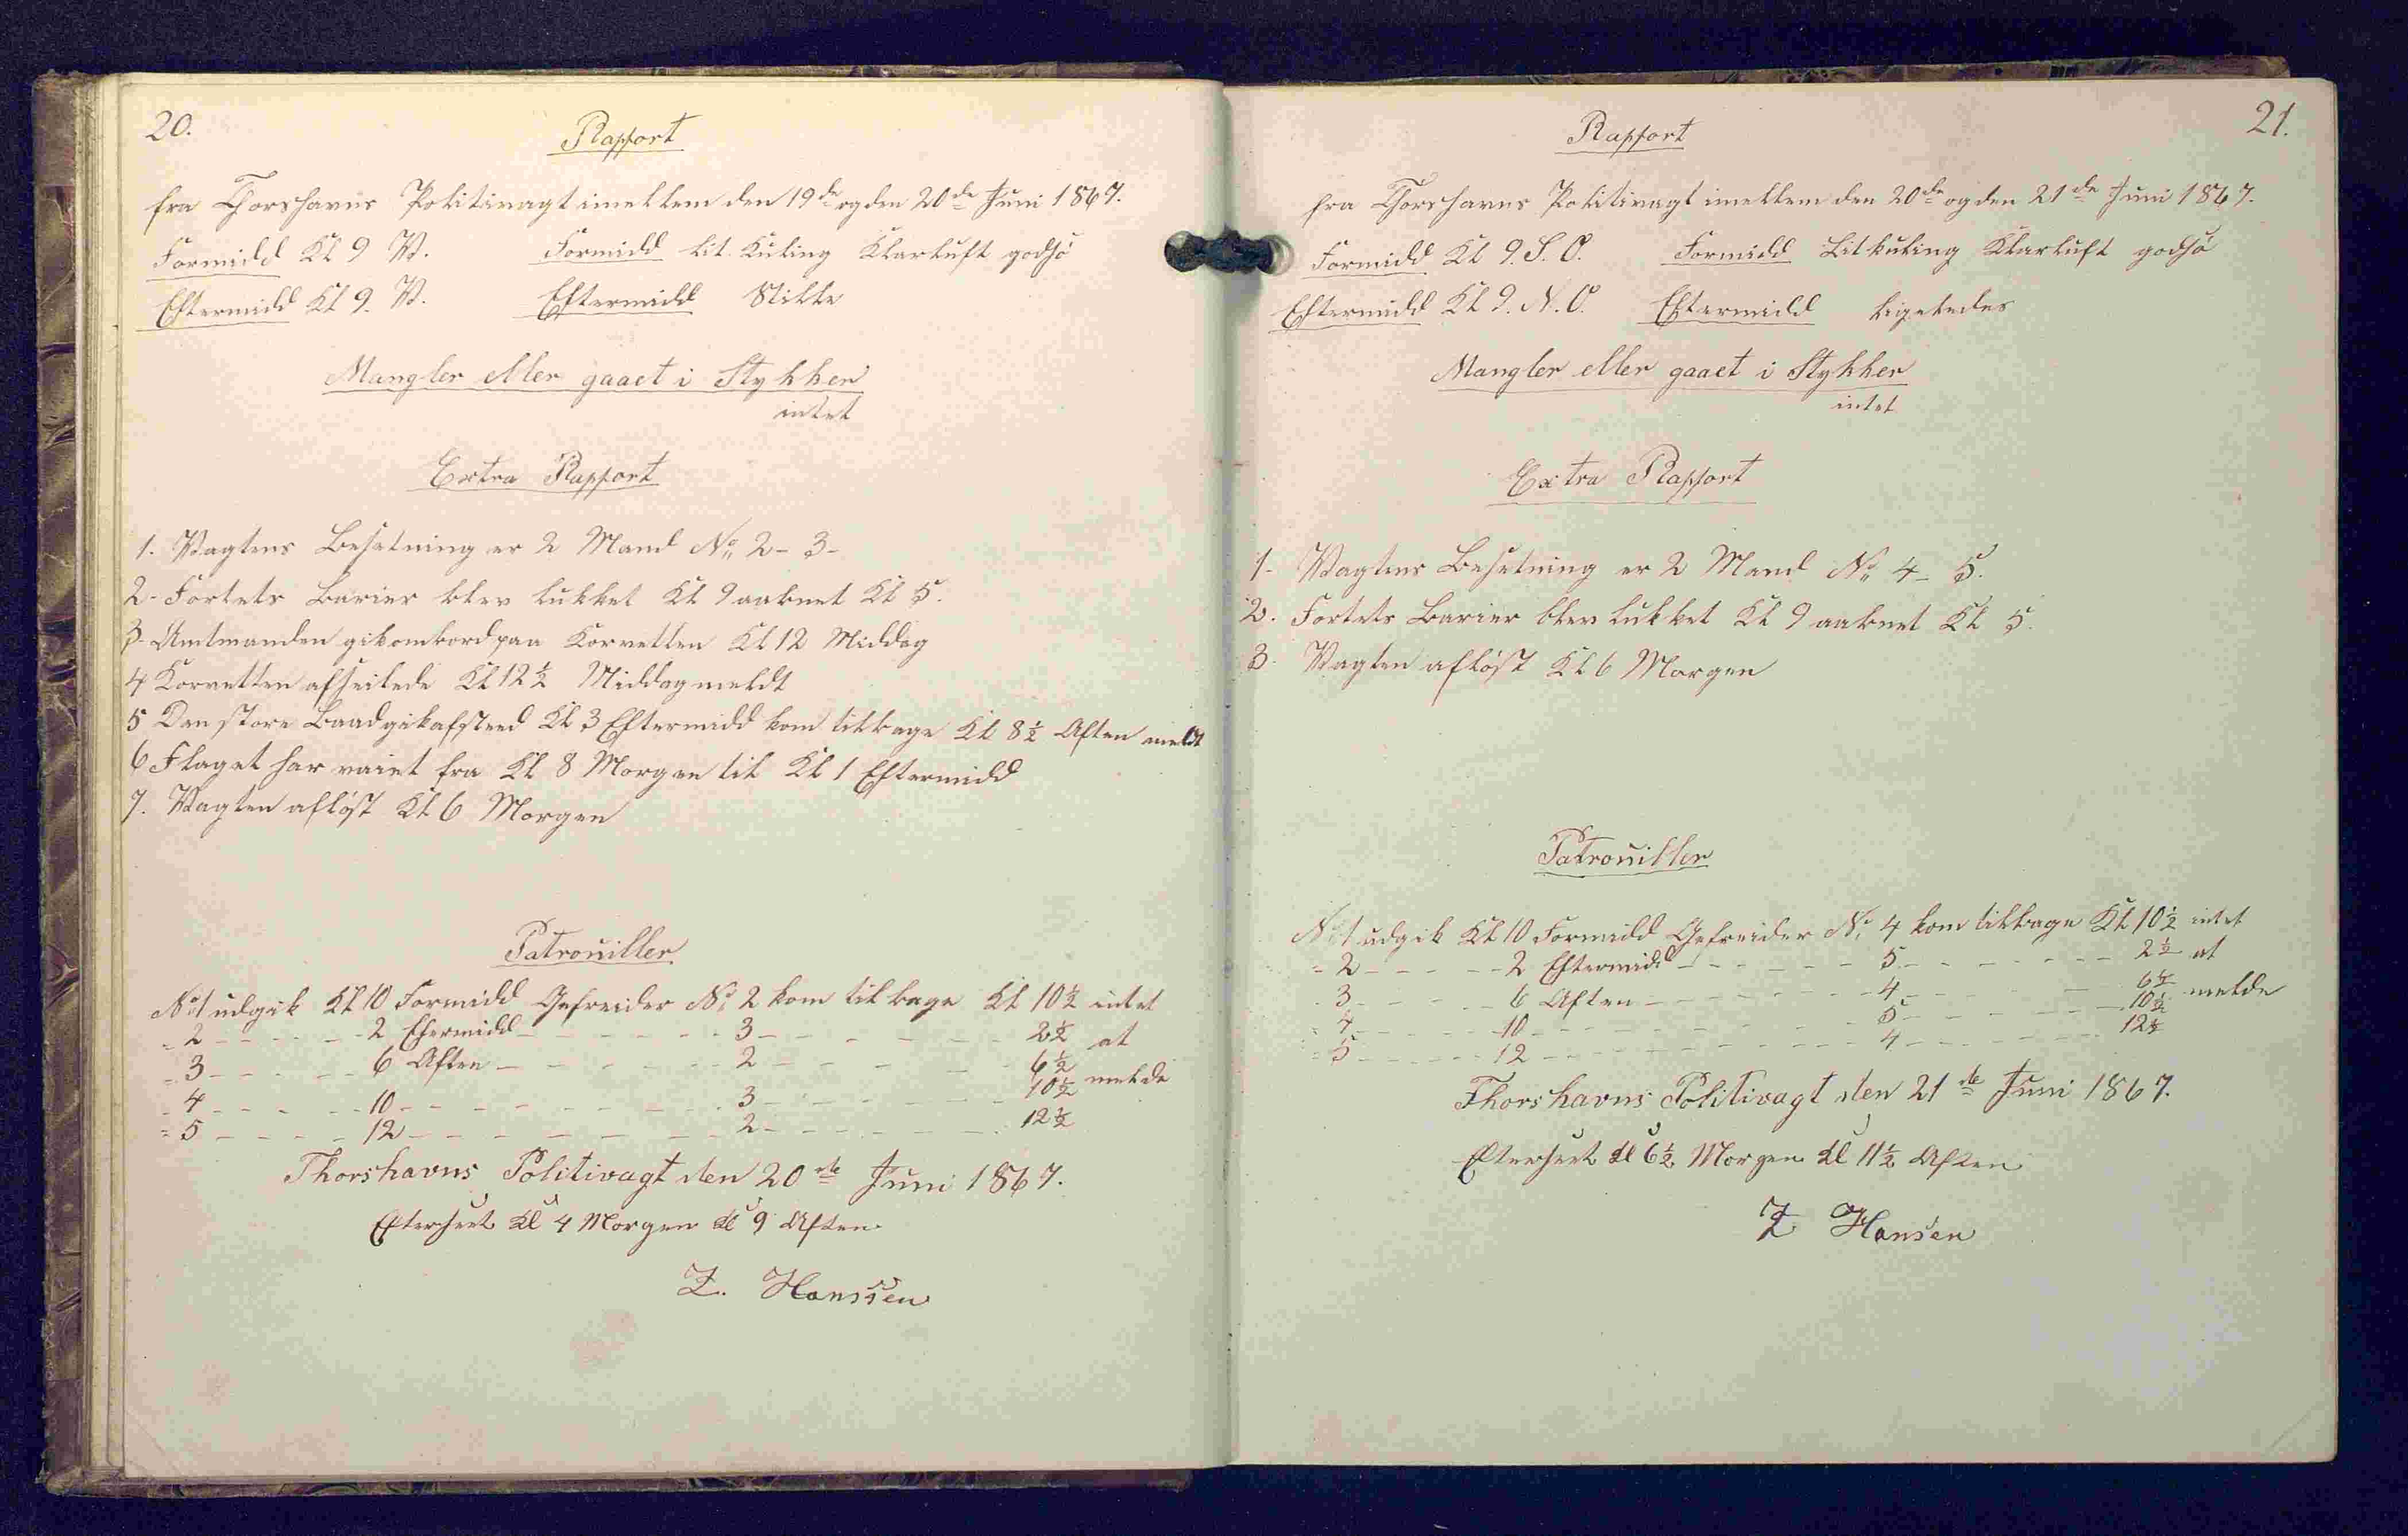 20.
Rapport
fra Thorshavns Politivagt imellem den 19de og den 20de Juni 1867.
Formidd Kl 9 V. Formidd lit. Kuling Klarluft godsö
Eftermidd Kl 9. V. Eftermidd Stille
Mangler eller gaaet i Stykker
intet
Extra Rapport
1. Vagtens Besetning er 2 Mand No 2 - 3 -
2 - Fortets Barier blev lukket Kl 9 aabnet Kl 5.
3 - Amtmanden gik ombord paa Korvetten Kl 12 Middag
4 Korvetten afseilede Kl 12½ Middag meldt
5 Den store Baad gik afsted Kl 3 Eftermidd kom tilbage Kl 8½ Aften meldt
6 Flaget har vaiet fra Kl 8 Morgen til Kl 1 Eftermidd
7. Vagten aflöst Kl 6 Morgen
Patrouiller
No 1 udgik Kl 10 Formidd Gefreider No 2 kom tilbage Kl 10½ intet
= 2 - - - - - 2 Efermidd - - - - - 3 - - - - - - 2½ at
= 3 - - - - - 6 Aften - - - - - 2 - - - - - 6½
= 4 - - - - - 10 - - - - - - - - 3 - - - - - - 10½ melde
= 5 - - - - 12 - - - - - - - - 2 - - - - - - 12½
Thorshavns Politivagt den 20de Juni 1867.
Efterseet Kl 4 Morgen Kl 9 Aften
Z. Hanssen
21.
Rapport
fra Thorshavns Politivagt imellem den 20de og den 21de Juni 1867.
Formidd Kl 9. S. O. Formidd Lit kuling Klarluft godsö
Eftermidd Kl 9. N. O. Eftermidd ligeledes
Mangler eller gaaet i Stykker
intet
Extra Rapport
1 - Vagtens Besetning er 2 Mand No 4 - 5.
2. Fortets Barier blev lukket Kl 9 aabnet Kl 5.
3. Vagten aflöst Kl 6 Morgen
Patrouiller
No 1 udgik Kl 10 Formidd Gefreider No 4 kom tilbage Kl 10½ intet
= 2 - - - - - 2 Eftermidd - - - - - 5 - - - - - - 2½ at
= 3 - - - - - 6 Aften - - - - - - 4 - - - - 6½
= 4 - - - - - 10 - - - - - - - - 5 - - - - - 10½ melde
= 5 - - - - - 12 - - - - - - - - 4 - - - - - - 12½
Thorshavns Politivagt den 21de Juni 1867.
Efterseet Kl 6½ Morgen Kl 11½ Aften
Z Hansen